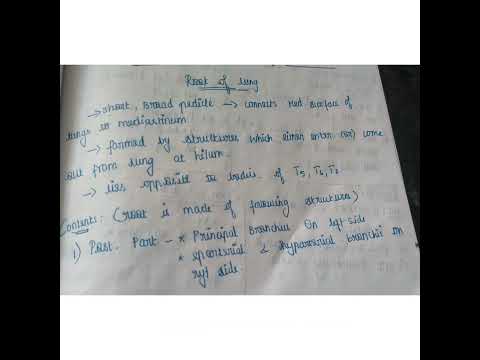 Root of lung
→ short, broad pedicle → connects med surface of
lungs to mediastinum
→ formed by structures which either enter (or) come
out from lung at hilum.
→ lies opposite to bodies of T5, T6, T7
Contents: (root is made of following structures)
1) Post. Part - * Principal bronchus on left side
* eparterial & hyparterial bronchii on
ryt side.